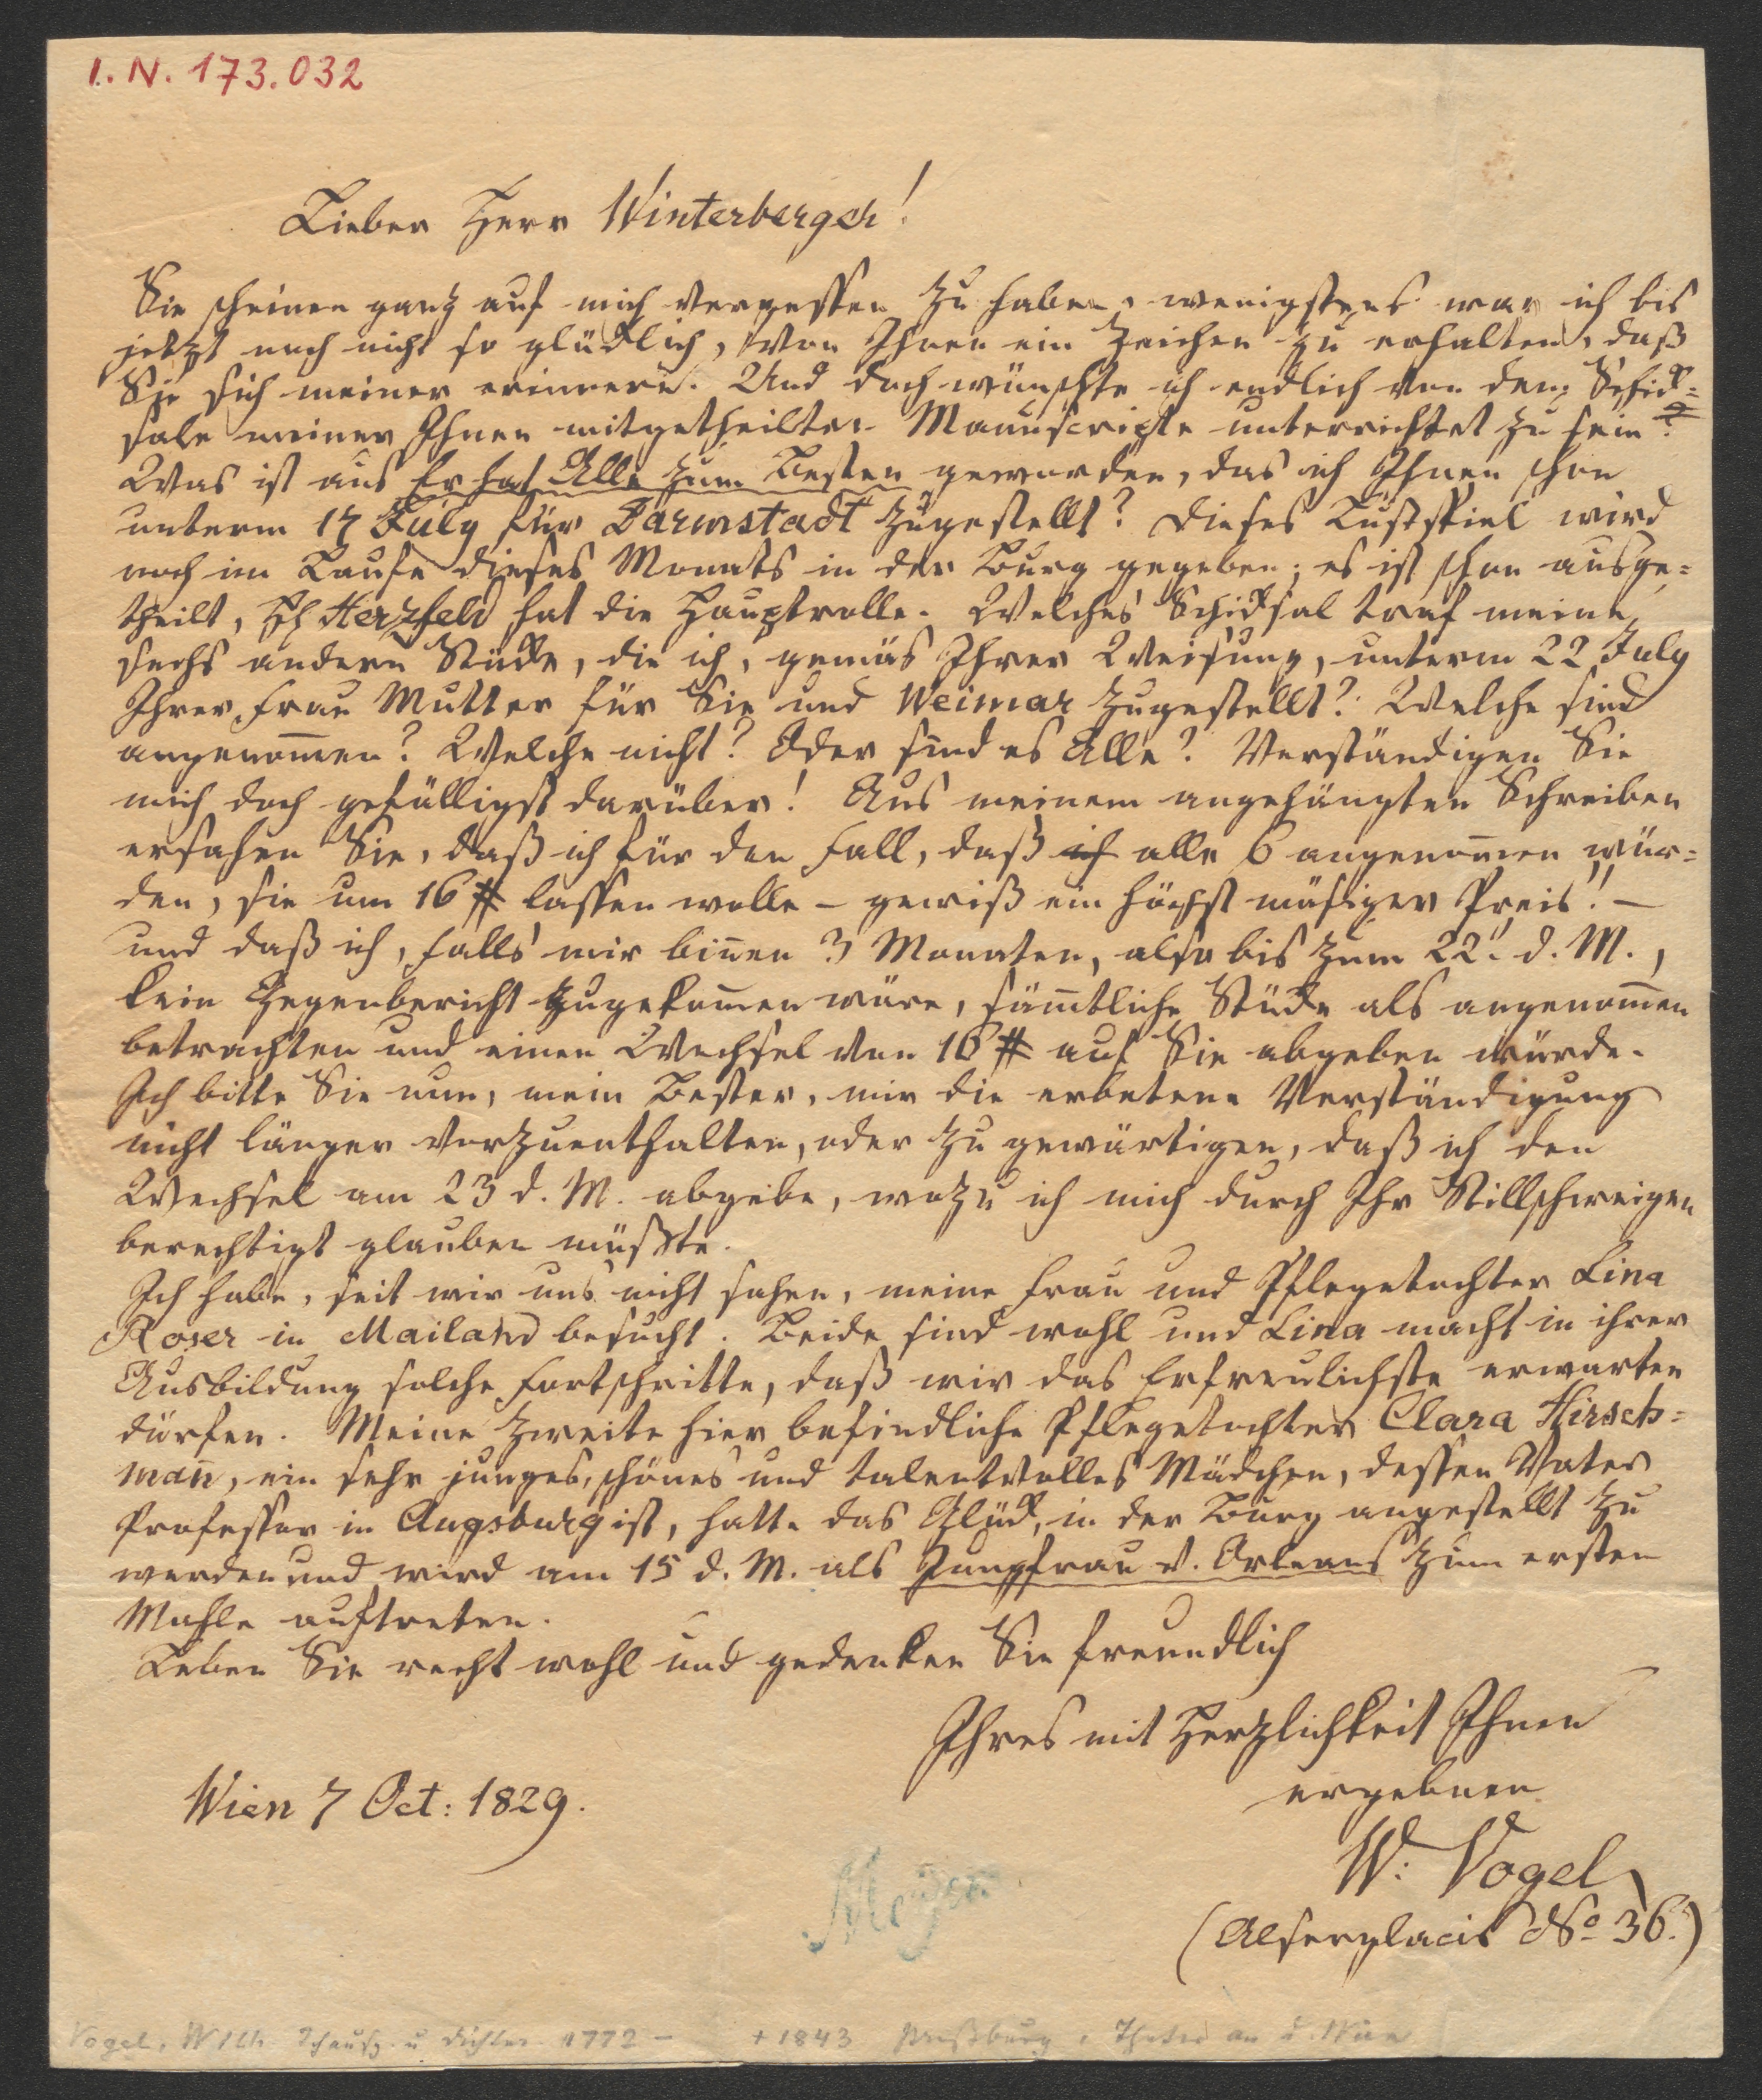 I. N. 173.032
Lieber Herr Winterberger!
Sie scheinen ganz auf mich vergessen zu haben, wenigstens war ich bis
jetzt noch nicht so glücklich, von Ihnen ein Zeichen zu erhalten, daß
Sie sich meiner erinnern. Und doch wünschte ich endlich von dem Schick=
sale meiner Ihnen mitgetheilten Manuscripte unterrichtet zu sein?
Was ist aus Er hat Alle zum Besten geworden, das ich Ihnen schon
unterm 17 July für Darmstadt zugestellt? Dieses Lustspiel wird
noch im Laufe dieses Monats in der Burg gegeben; es ist schon ausge=
theilt, Herzfeld hat die Hauptrolle. Welches Schicksal traf meine
sechs andern Stücke, die ich, gemäs Ihrer Weisung, unterm 22 July
Ihrer Frau Mutter für Sie und Weimar zugestellt? Welche sind
angenom̅en? Welche nicht? Oder sind es Alle? Verständigen Sie
mich doch gefälligst darüber! Aus meinem angehängten Schreiben
ersahen Sie, daß ich für den Fall, daß ich alle 6 angenom̅en wür=
den, sie um 16 # lassen wolle – gewiß ein höchst mäsiger Preis! –
und daß ich, falls mir bin̅en 3 Monaten, also bis zum 22. d. M.,
kein Gegenbericht zugekom̅en wäre, säm̅tliche Stücke als angenom̅en
betrachten und einen Wechsel von 16 # auf Sie abgeben würde.
Ich bitte Sie nun, mein Bester, mir die erbetene Verständigung
nicht länger vorzuenthalten, oder zu gewärtigen, daß ich den
Wechsel am 23 d. M. abgebe, wozu ich mich durch Ihr Stillschweigen
berechtigt glauben müßte.
Ich habe, seit wir uns nicht sahen, meine Frau und Pflegetochter Lina
Roser in Mailand besucht. Beide sind wohl und Lina macht in ihrer
Ausbildung solche Fortschritte, daß wir das Erfreulichste erwarten
dürfen. Meine zweite hier befindliche Pflegetochter Clara Hirsch=
man̅, ein sehr junges, schönes und talentvolles Mädchen, dessen Vater
Professor in Augsburg ist, hatte das Glück, in der Burg angestellt zu
werden und wird am 15 d. M. als Jungfrau v. Orleans zum ersten
Mahle auftreten.
Leben Sie recht wohl und gedenken Sie freundlich
Ihres mit Herzlichkeit Ihnen
ergebnen
Wien 7 Oct: 1829.
W: Vogel
(Alserglacis No 36.)
Vogel, Wilh. Schausp. u Dichter 1772 – + 1843 Theater an d. Wien